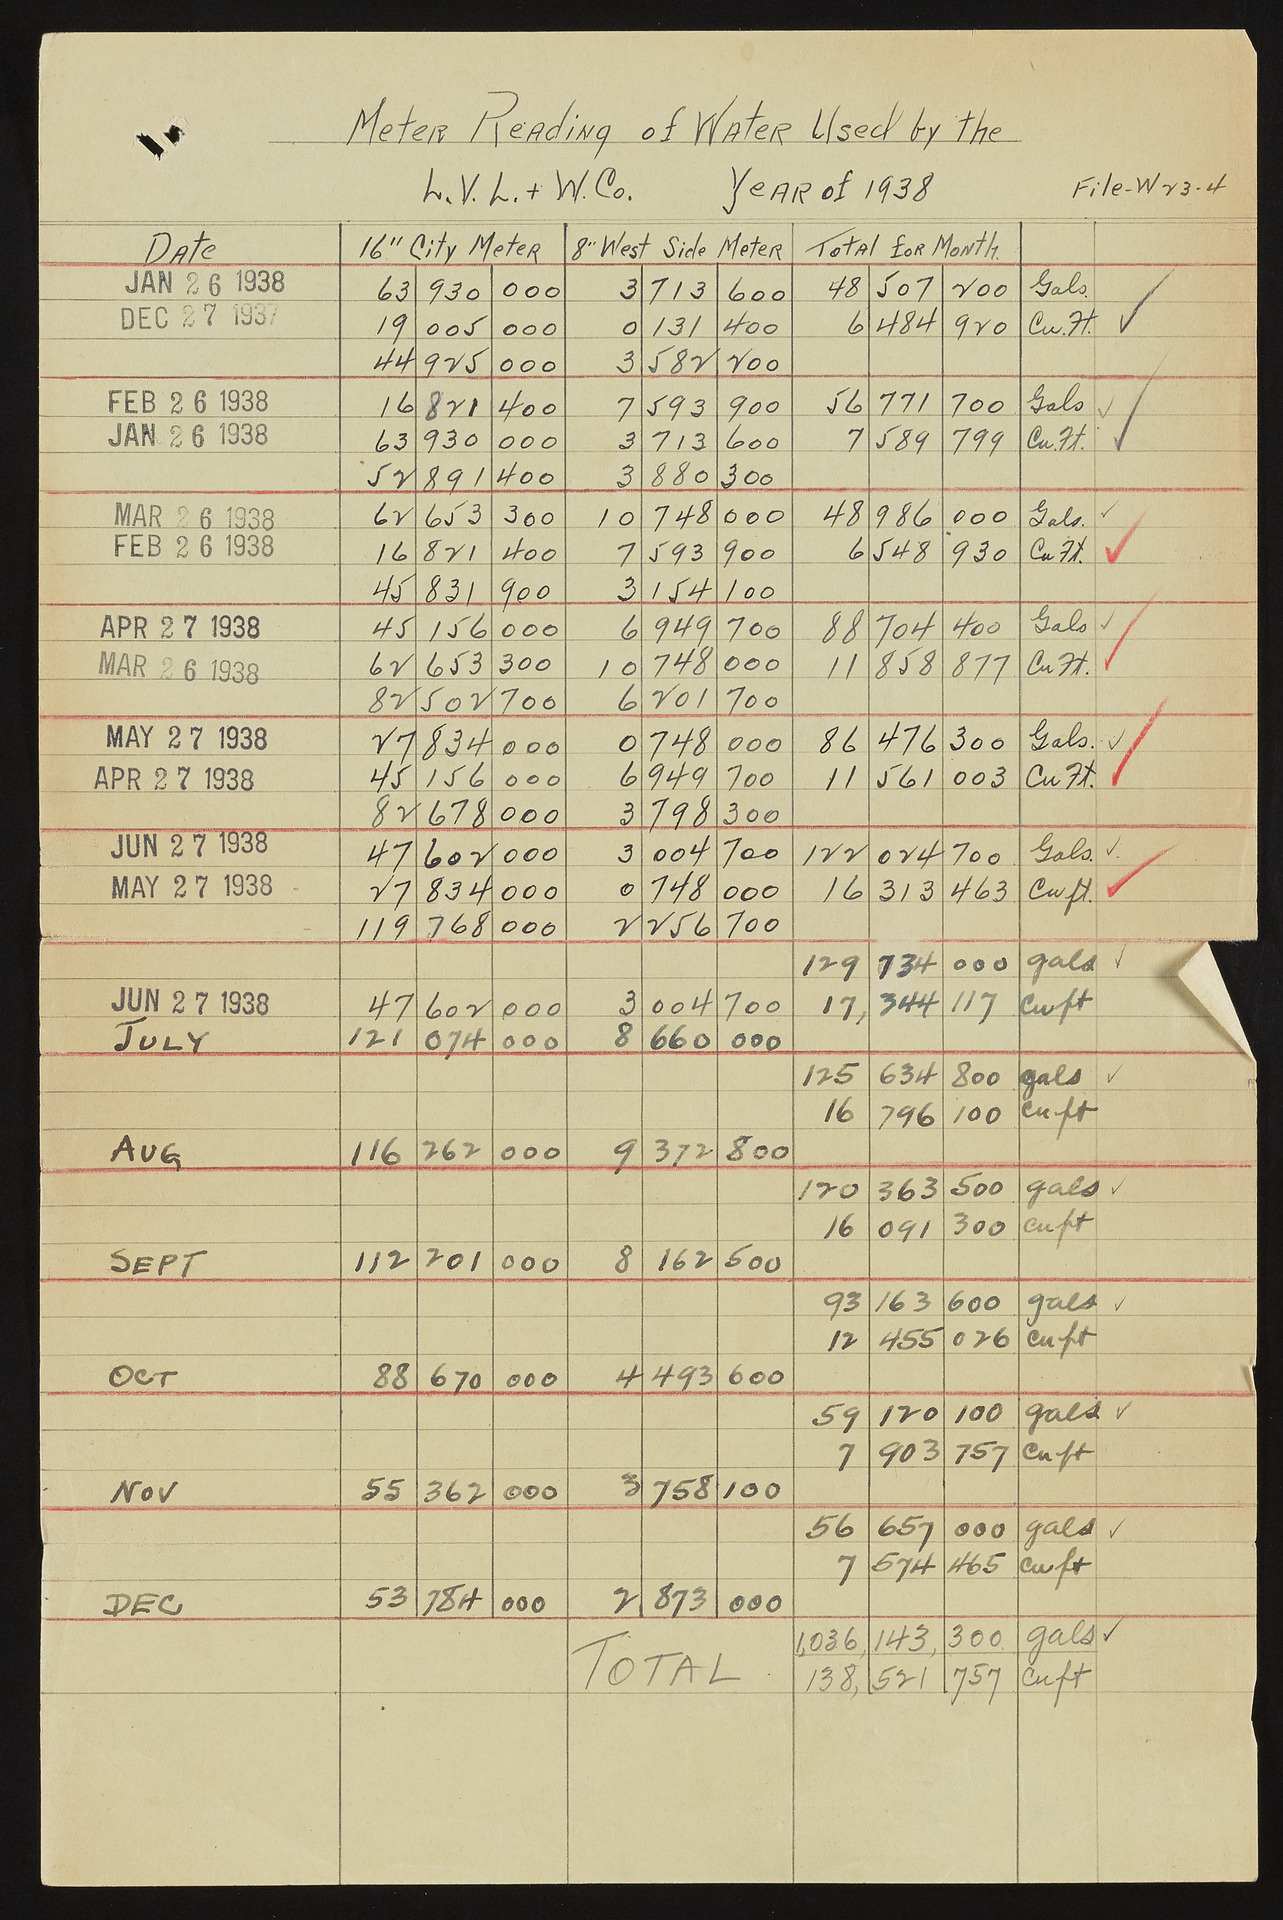 Meter Reading of Water Used by the
L.V.L. + W. Co. Year of 1938 File-W23-4
Date 16" City Meter 8" West Side Meter Total for Month
JAN 26 1938 63 930 000 3 713 600 48 507 200 Gals.
DEC 27 1937 19 005 000 0 131 400 6 484 920 Cu. Ft. ✓
44 925 000 3 582 200
FEB 26 1938 16 821 400 7 593 900 56 771 700 Gals ✓
JAN 26 1938 63 930 000 3 713 600 7 589 799 Cu. Ft. ✓
52 891 400 3 880 300
MAR 26 1938 62 653 300 10 748 000 48 986 000 Gals. ✓
FEB 26 1938 16 821 400 7 593 900 6 548 930 Cu Ft. ✓
45 831 900 3 154 100
APR 27 1938 45 156 000 6 949 700 88 704 400 Gals ✓
MAR 26 1938 62 653 300 10 748 000 11 858 877 Cu Ft. ✓
82 502 700 6 201 700
MAY 27 1938 27 834 000 0 748 000 86 476 300 Gals. ✓
APR 27 1938 45 156 000 6 949 700 11 561 003 Cu Ft. ✓
82 678 000 3 798 300
JUN 27 1938 47 602 000 3 004 700 122 024 700 Gals. ✓
MAY 27 1938 27 834 000 0 748 000 16 313 463 Cu ft. ✓
119 768 000 2 256 700
129 734 000 gals ✓
JUN 27 1938 47 602 000 3 004 700 17, 344 117 cu ft
JULY 121 074 000 8 660 000
125 634 800 gals ✓
16 796 100 cu ft
AUG 116 262 000 9 372 800
120 363 500 gals ✓
16 091 300 cu ft
SEPT 112 201 000 8 162 500
93 163 600 gals ✓
12 455 026 cu ft
OCT 88 670 000 4 493 600
59 120 100 gals ✓
7 903 757 cu ft
NOV 55 362 000 3 758 100
56 657 000 gals ✓
7 574 465 cu ft
DEC 53 784 000 2 873 000
1,036, 143, 300 gals ✓
TOTAL 138, 521 757 cu ft